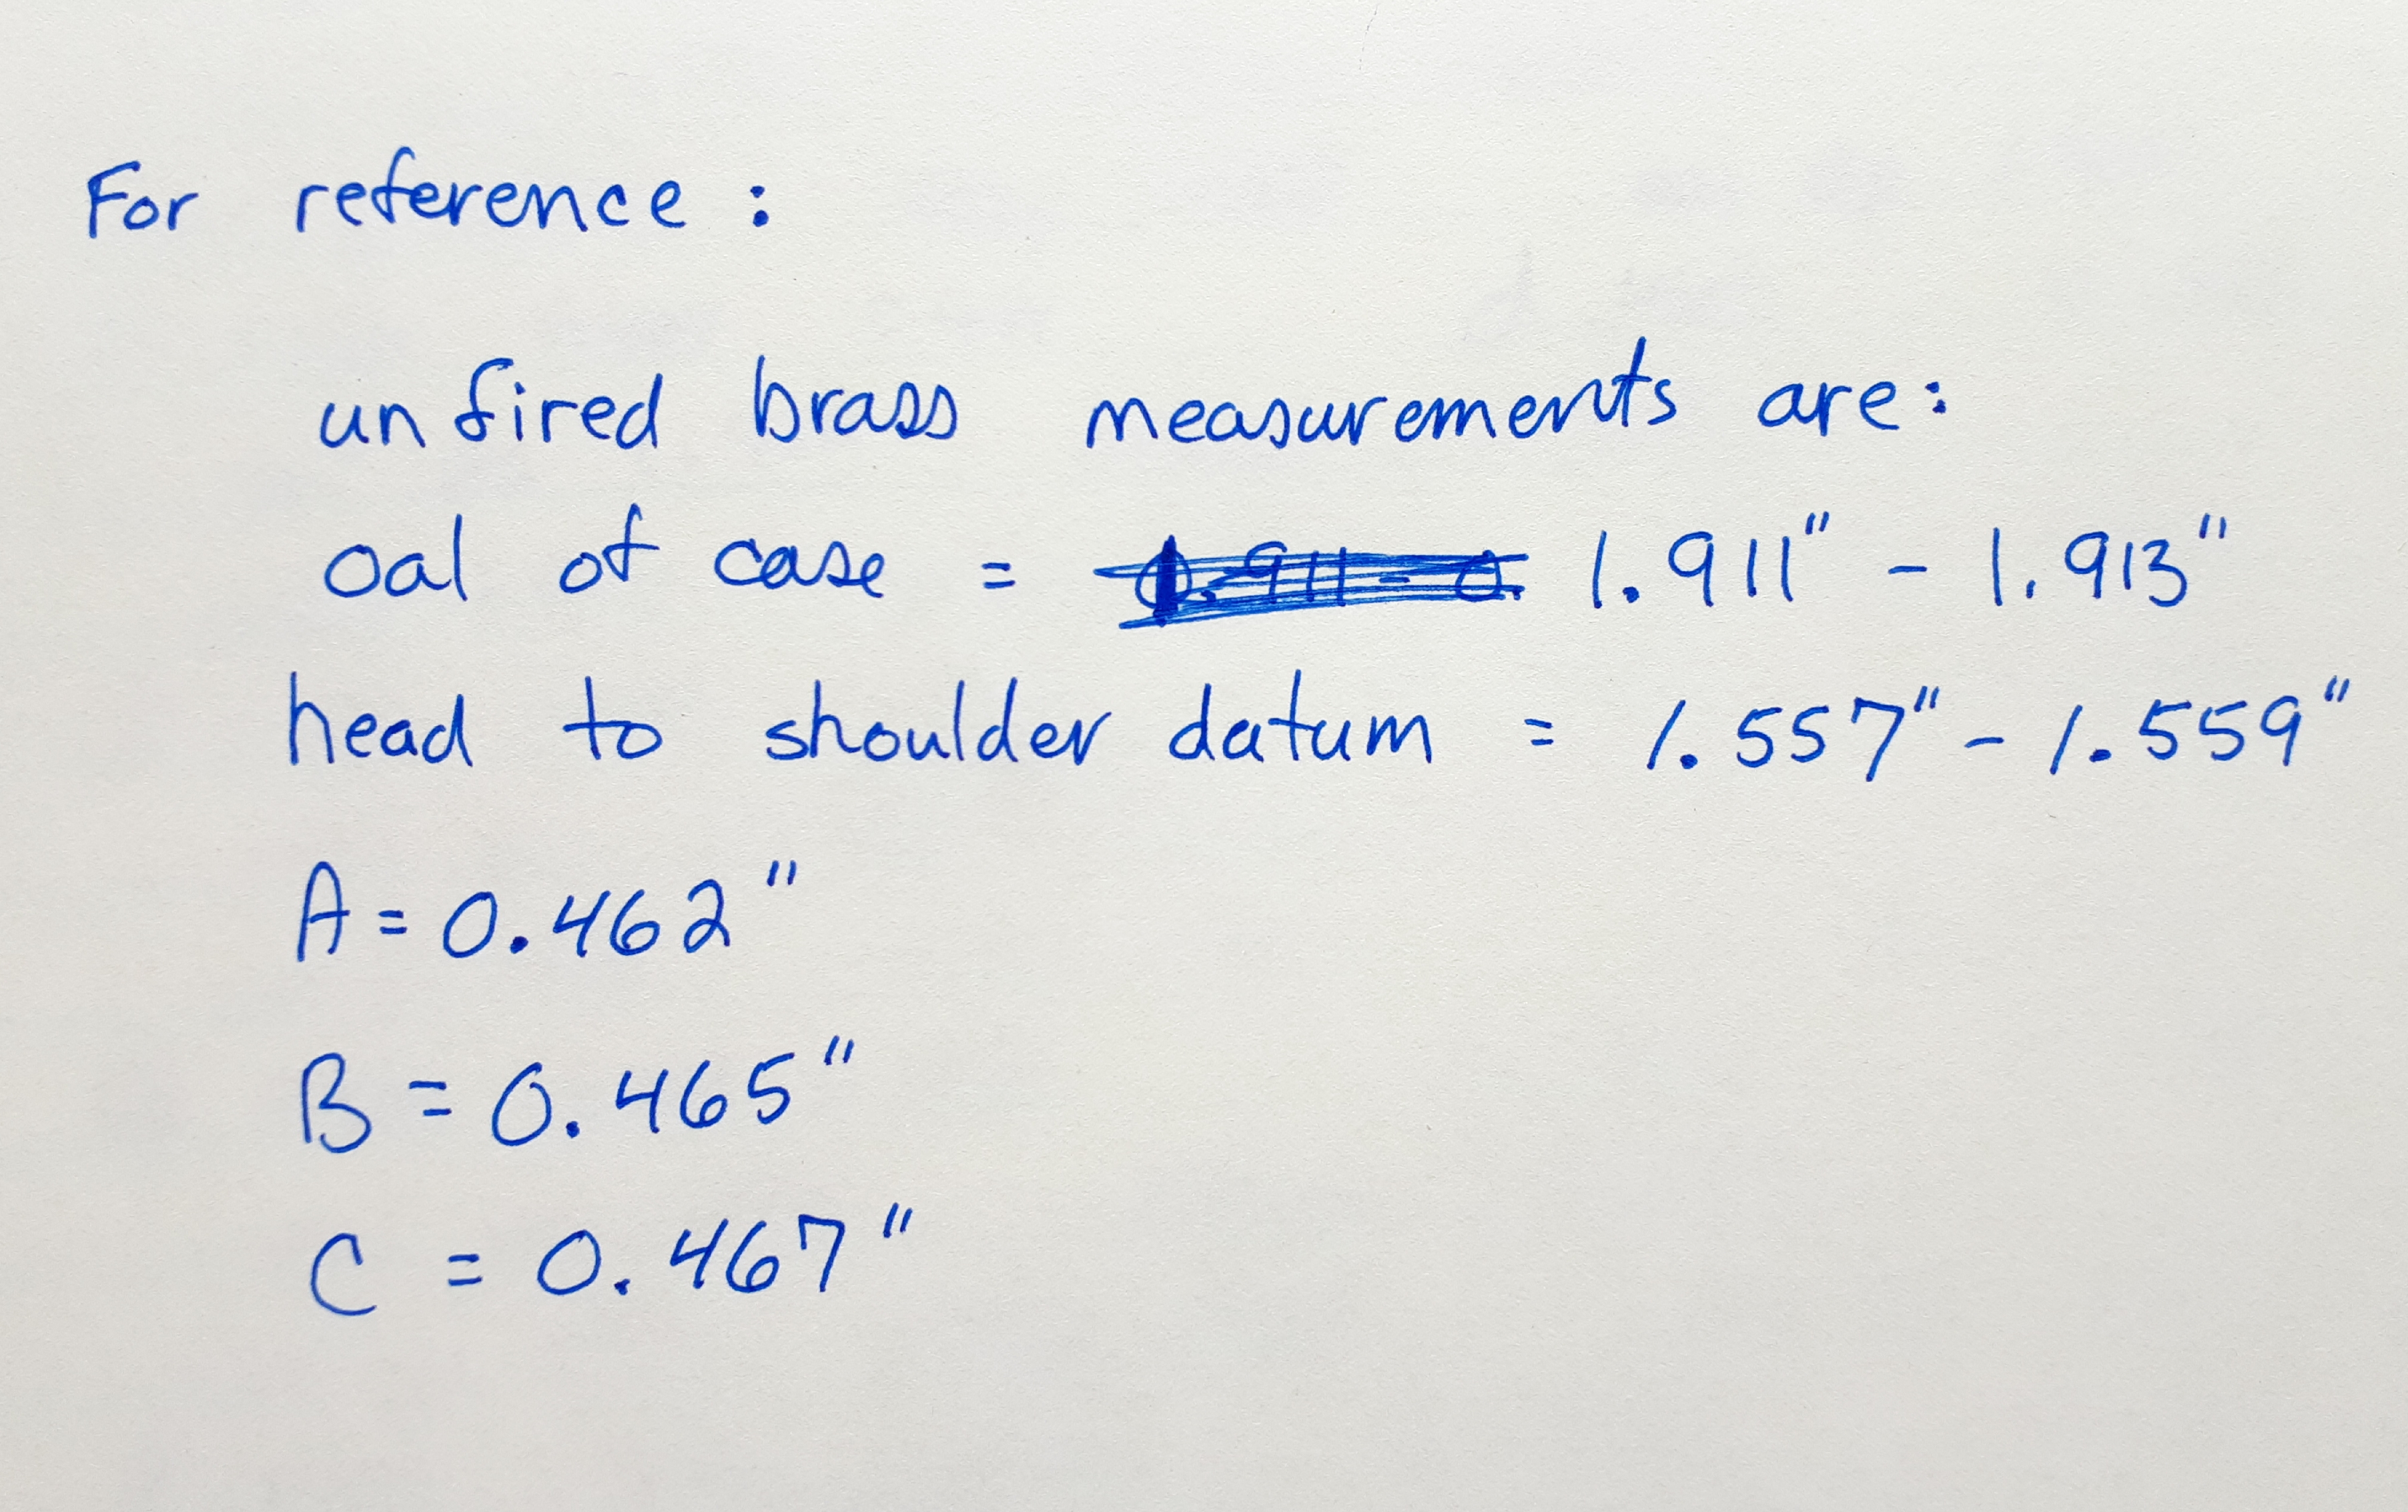 For reference :
unfired brass measurements are:
oal of case = 1.911" - 1.913"
head to shoulder datum = 1.557" - 1.559"
A = 0.462"
B = 0.465"
C = 0.467"